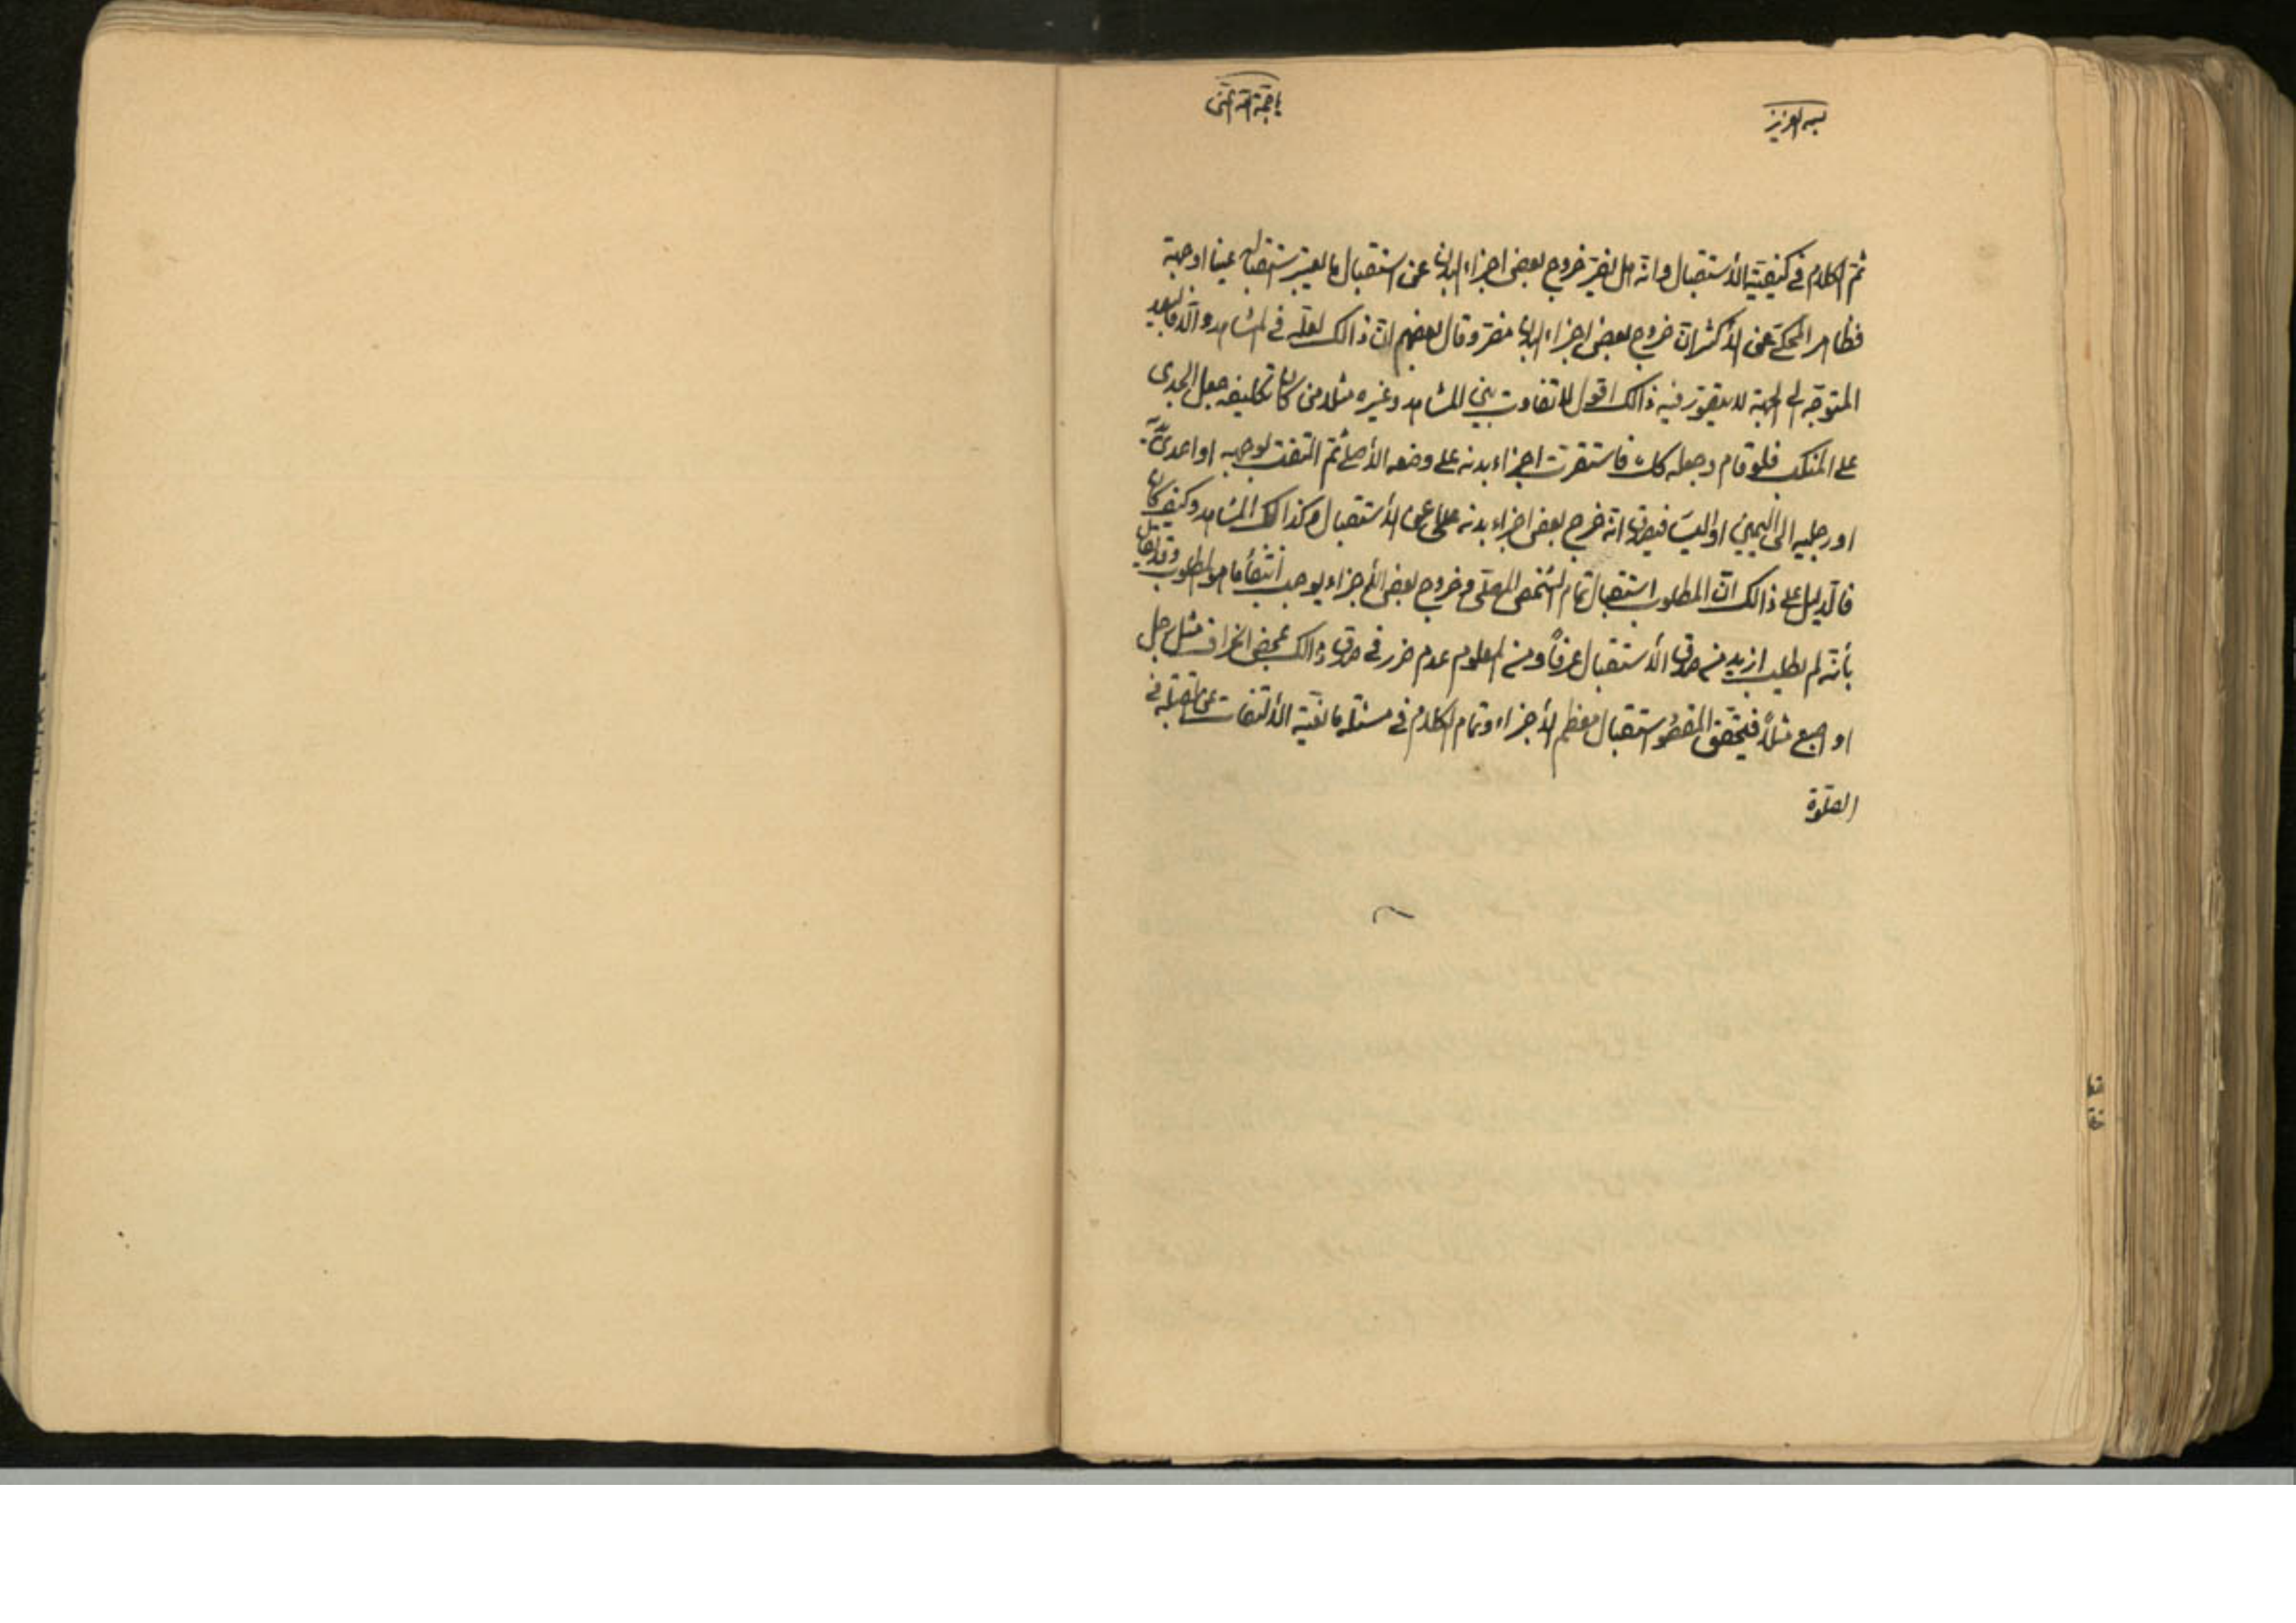 بسمه العزيز
يا حجة الله اغثنى
ثم الكلام فى كيفية الأستقبال وانه هل يضر خروج بعض اجزاء البدن عن استقبال ما يعتبر استقباله عينا او جهة
فظاهر المحكى عن الأكثر ان خروج بعض اجزاء البدن مضر وقال بعضهم ان ذالك لعله فى المشاهد والا فالبعيد
المتوجه الى الجهة لا يتصور فيه ذالك اقول لا تفاوت بين المشاهد وغيره مثلا من كان تكليفه جعل الجدى
على المنكب فلو قام وجعله كك فاستقرت اجزاء بدنه على وضعه الأصلى ثم التفت بوجهه او احدى
او رجليه الى اليمين او اليسا فيصدق انه خرج بعض اجزاء بدنه عن الأستقبال وكذالك المشاهد وكيف كان
فالدليل على ذالك ان المطلوب استقبال تمام الشخص المصلى وخروج بعض الأجزاء يوجب انتفاء ما هو المطلوب وقد يقال
بأنه لم يطلب ازيد من صدق الأستقبال عرفاً ومن المعلوم عدم ضرر فى صدق ذالك بمحض انحراف مثل رجل
او اصبع مثلاً فيتحقق المقصو باستقبال معظم الأجزاء وتمام الكلام فى مسئلة مانعية الألتفات عن القبلة فى
الصلوة